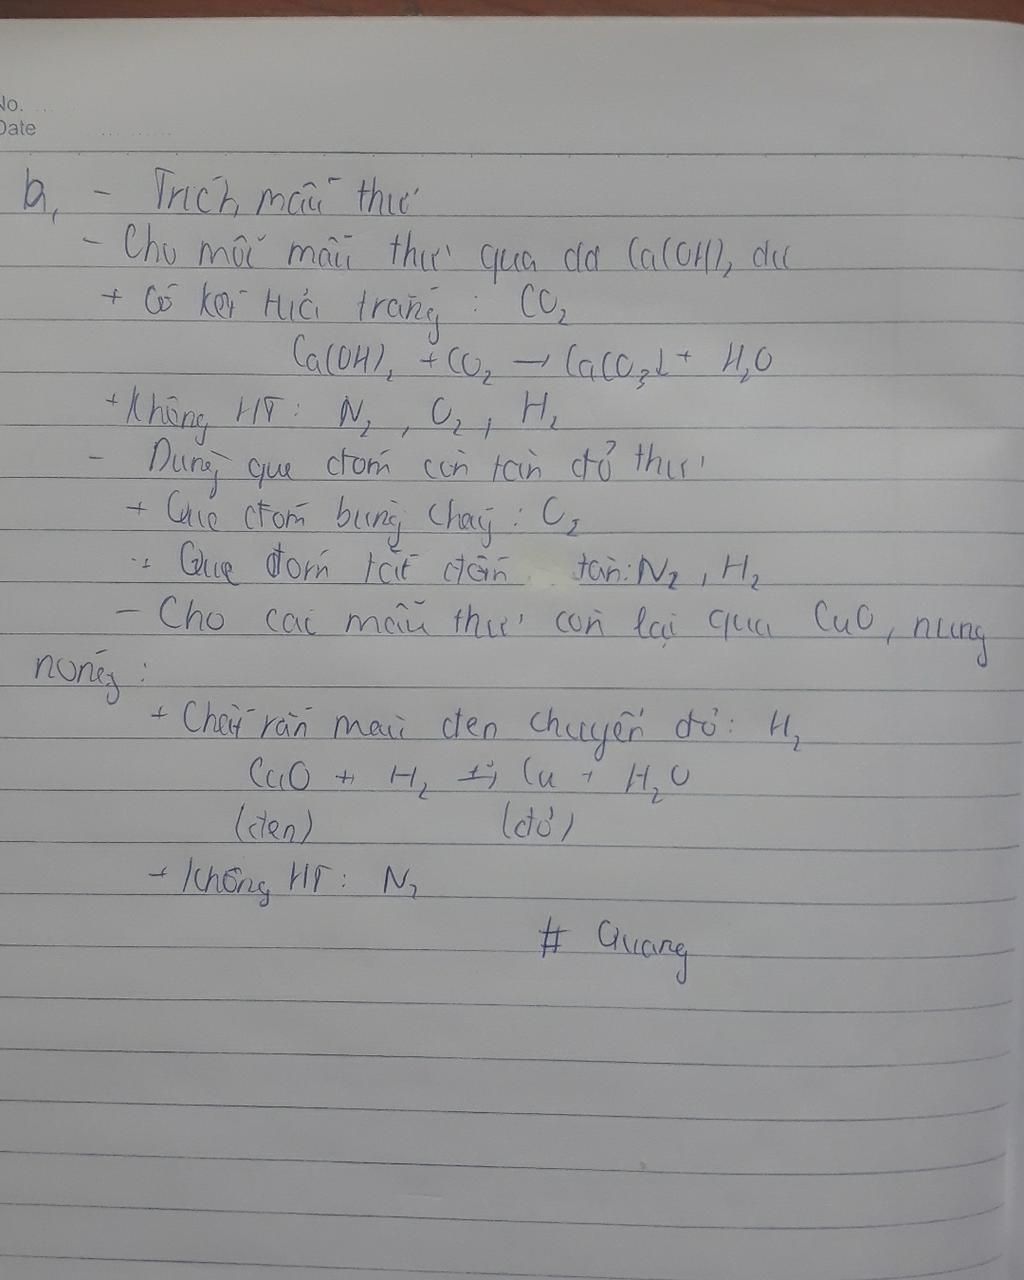 No.
Date
b, - Trích mẫu thử
- Cho mỗi mẫu thử qua dd Ca(OH)₂ dư
+ Có kết tủa trắng : CO₂
Ca(OH)₂ + CO₂ → CaCO₃↓ + H₂O
+ Không HT : N₂ , O₂ , H₂
- Dùng que đóm còn tàn đỏ thử
+ Que đóm bùng cháy : O₂
+ Que đóm tắt dần tàn: N₂ , H₂
- Cho các mẫu thử còn lại qua CuO, nung
nóng :
+ Chất rắn màu đen chuyển đỏ : H₂
CuO + H₂ → Cu + H₂O
(đen) (đỏ)
+ Không HT : N₂
# Quang